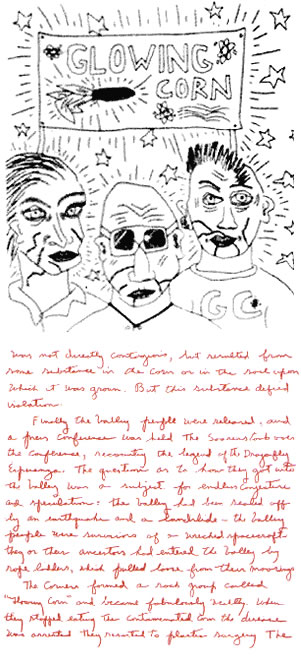 GLOWING
CORN
GC
was not directly contagious, but resulted from
some substance in the corn or in the soil upon
which it was grown. But this substance defied
isolation.
Finally the Valley people were released, and
a press conference was held. The took over
the conference, recounting the legend of the Dragonfly
Esperanza. The question as to how they got into
the Valley was a subject for endless conjecture
and speculation: the Valley had been sealed off
by an earthquake and a landslide — the Valley
people were survivors of a wrecked spacecraft
they or their ancestors had entered the Valley by
rope ladders, which pulled loose from their moorings
The formed a rock group called
"Glowing Corn" and became fabulously wealthy. When
they stopped eating the contaminated corn the disease
was arrested. They resorted to plastic surgery. The